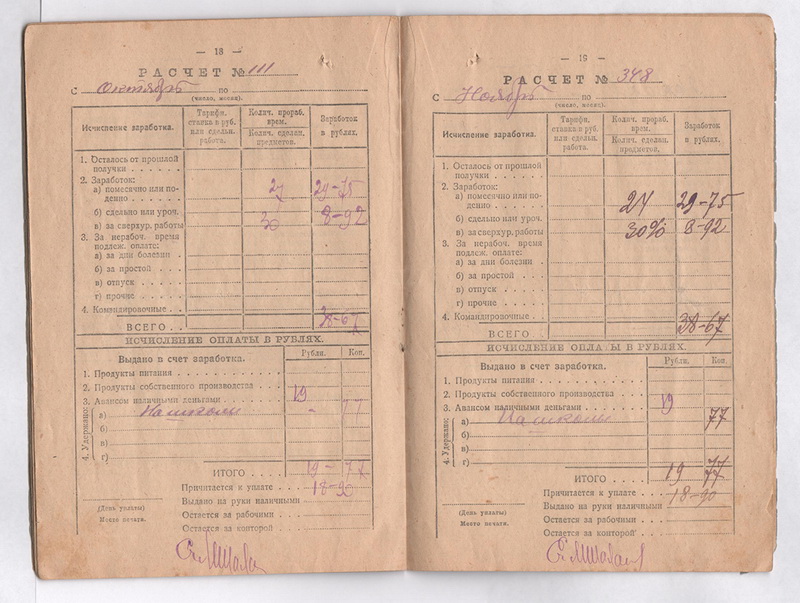 — 18 —
РАСЧЕТ № 111
С Октябрь по
(число, месяц).
Исчисление заработка.
Тарифн. ставка в руб. или сдельн. работа.
Колич. прораб. врем.
Колич. сделан. предметов.
Заработок в рублях.
1. Осталось от прошлой
получки
2. Заработок:
а) помесячно или по-
денно 29-75
б) сдельно или уроч.
в) за сверхур. работы 30 8-92
3. За нерабоч. время
подлеж. оплате:
а) за дни болезни
б) за простой
в) отпуск
г) прочие
4. Командировочные
ВСЕГО 38-67
ИСЧИСЛЕНИЕ ОПЛАТЫ В РУБЛЯХ.
Выдано в счет заработка.
Рубли. Коп.
1. Продукты питания
2. Продукты собственного производства
3. Авансом наличными деньгами 19
4. Удержано:
а) 77
б)
в)
г)
ИТОГО 19 - 77
Причитается к уплате 18-90
Выдано на руки наличными
(День уплаты)
Остается за рабочими
Место печати.
Остается за конторой
— 19 —
РАСЧЕТ № 348
С Ноябрь по
(число, месяц).
Исчисление заработка.
Тарифн. ставка в руб. или сдельн. работа.
Колич. прораб. врем.
Колич. сделан. предметов.
Заработок в рублях.
1. Осталось от прошлой
получки
2. Заработок:
а) помесячно или по-
денно 24 29-75
б) сдельно или уроч.
в) за сверхур. работы 30% 8-92
3. За нерабоч. время
подлеж. оплате:
а) за дни болезни
б) за простой
в) отпуск
г) прочие
4. Командировочные
ВСЕГО 38-67
ИСЧИСЛЕНИЕ ОПЛАТЫ В РУБЛЯХ.
Выдано в счет заработка.
Рубли. Коп.
1. Продукты питания
2. Продукты собственного производства
3. Авансом наличными деньгами 19
4. Удержано:
а) 77
б)
в)
г)
ИТОГО 19 77
Причитается к уплате 18-90
Выдано на руки наличными
(День уплаты)
Остается за рабочими
Место печати.
Остается за конторой